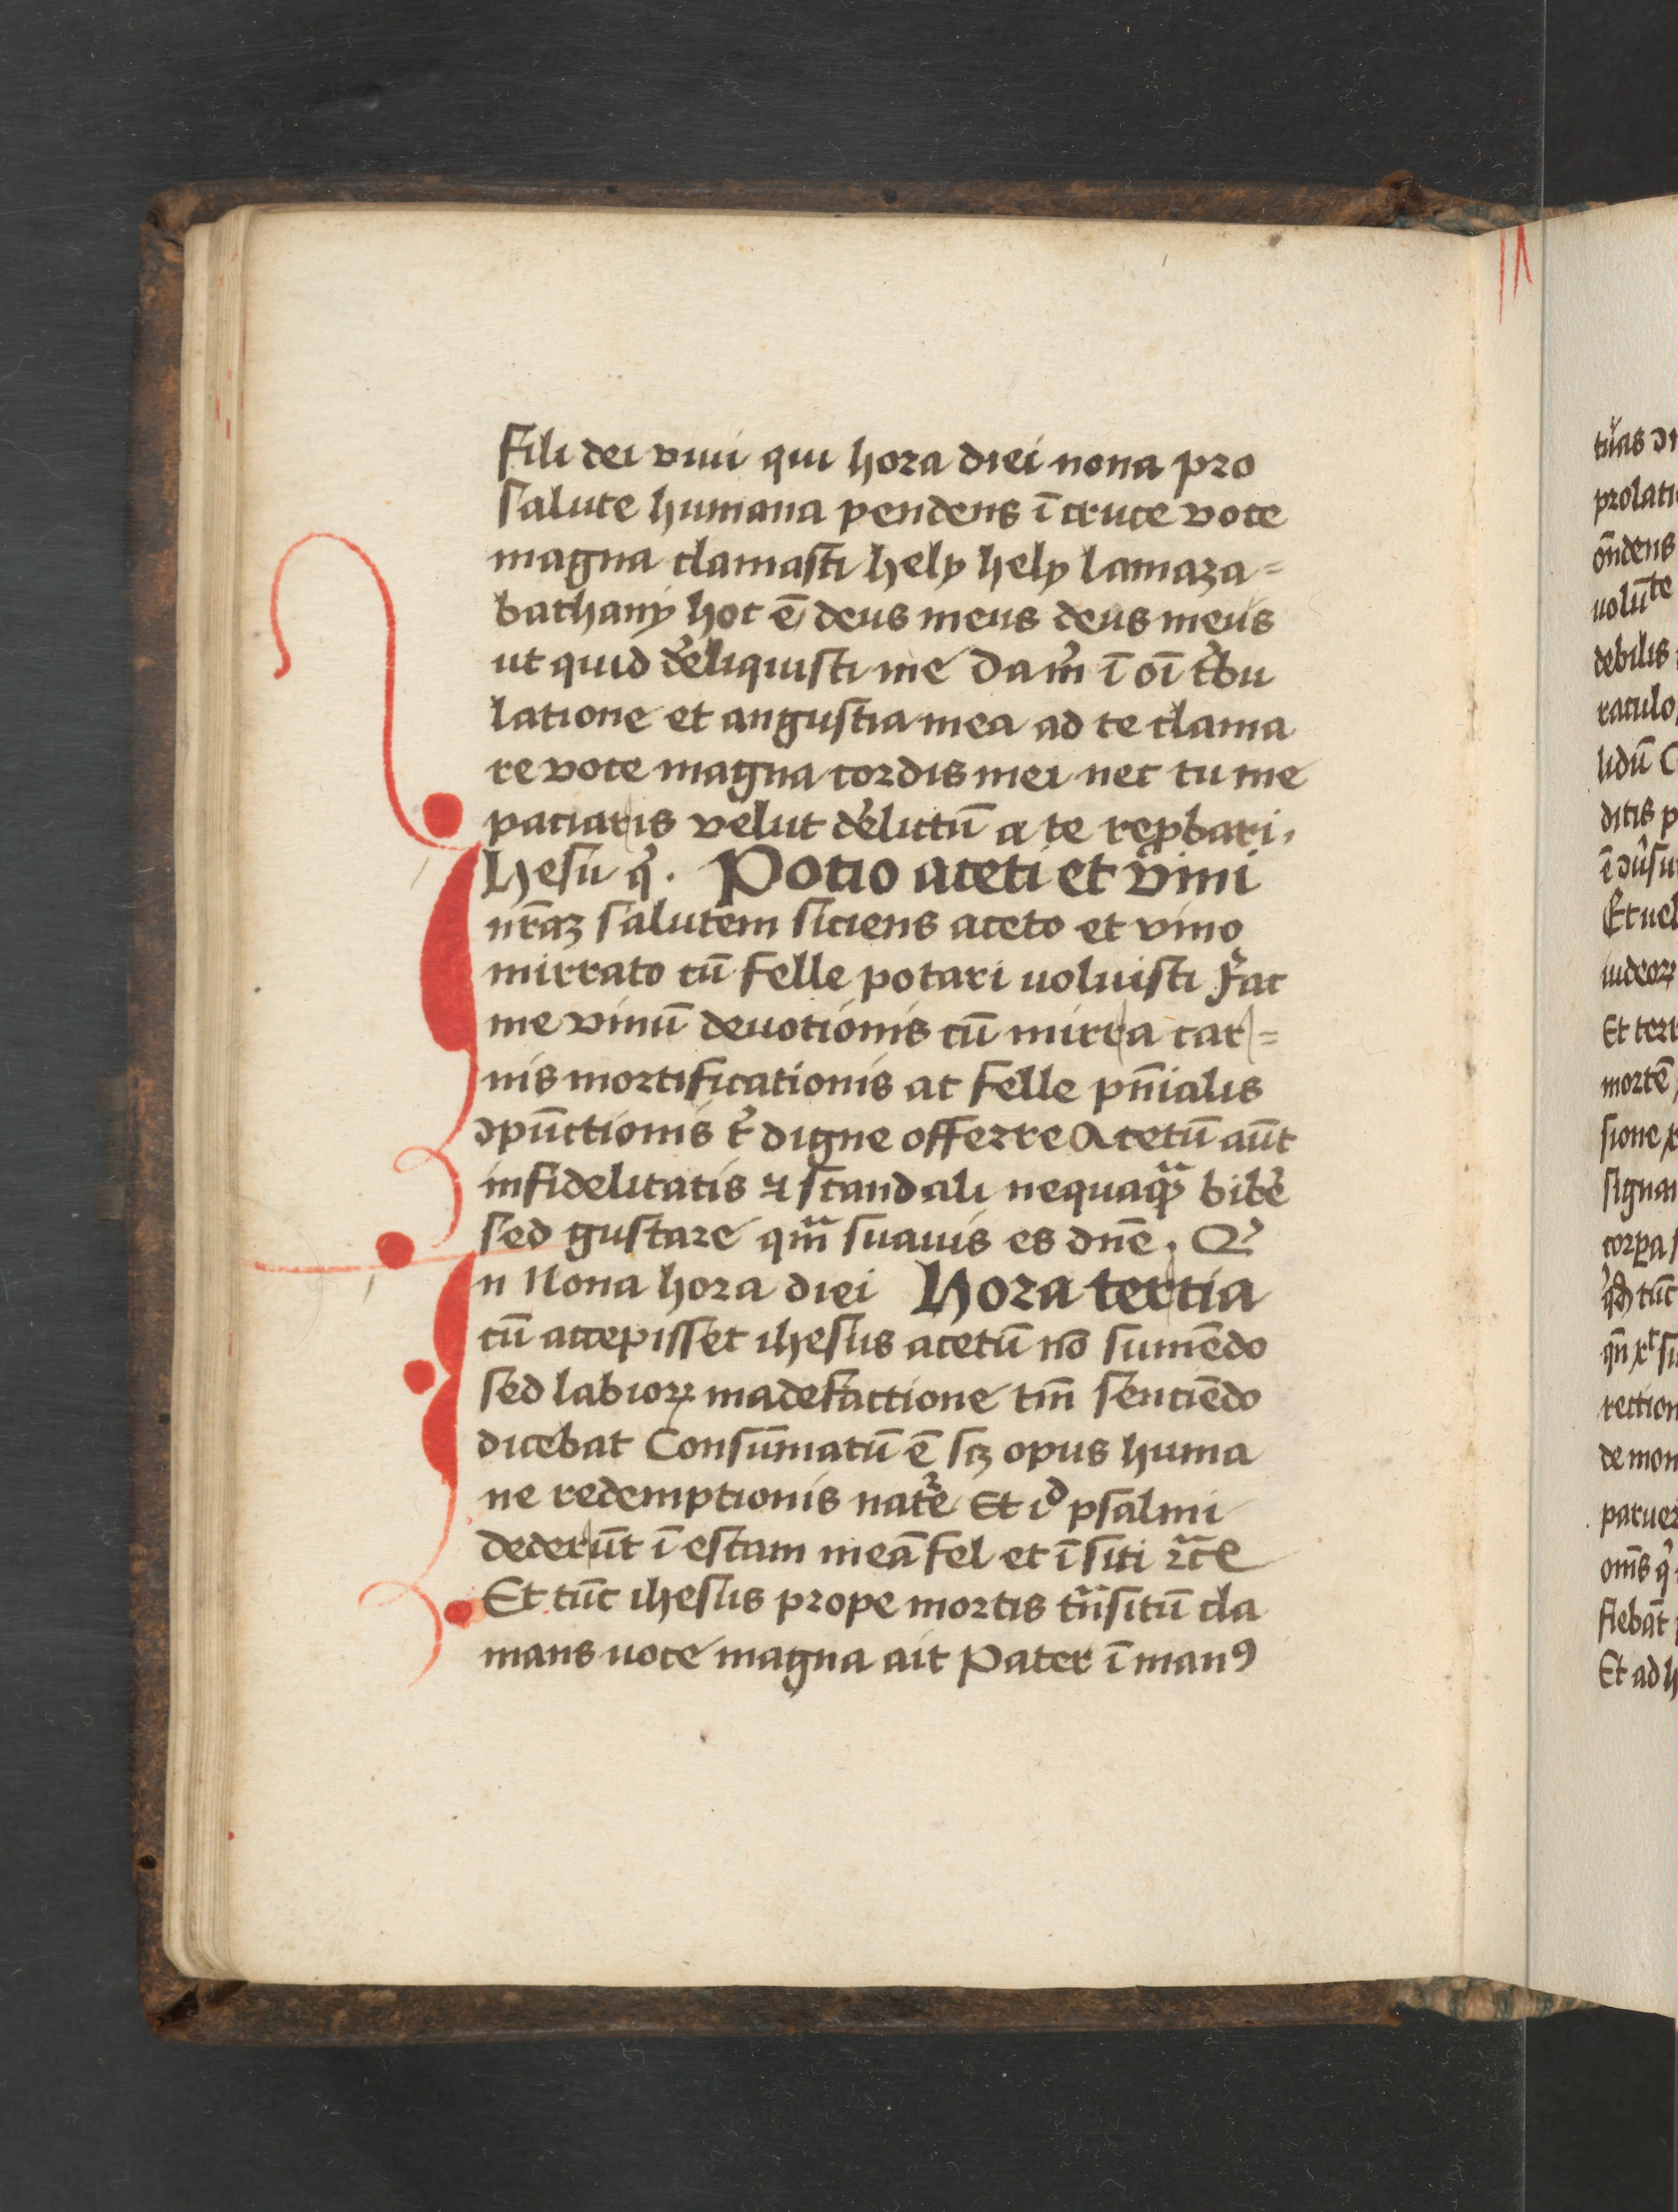 fili dei viui qui hora diei nona pro
salute humana pendens ī cruce voce
magna clamasti hely hely lamaza=
bathanÿ hoc ē deus meus deus meus
ut quid d͛eliquisti me Da m͛ ī oī t͛bu
latione et angustia mea ad te clama
re voce magna cordis mei nec tu me
paciaris velut d͛elictū a te rep̱bari.
Ihesu q͛. Potio aceti et vini
nr̄aꝫ salutem siciens aceto et vino
mirrato cū felle potari uoluisti fac
me vinū deuotionis cū mirra car=
nis mortificationis ac felle pn̄ialis
ↄpūctionis t͛ digne offerre Acetū aūt
infidelitatis ⁊ scandali nequaqᷓ bib͛e
sed gustare qm̄ suauis es dn̄e. Q͛
In Nona hora diei Hora tertia
cū accepisset ihesus acetū nō sumēdo
sed labioꝝ madefactione tm̄ senciēdo
dicebat Consūmatū ē sꝫ opus huma
ne redemptionis nat͛e Et iᵒ psalmi
dederūt ī escam meā fel et ī siti ⁊c̄e
Et tūc ihesus prope mortis trᷓsitū cla
mans uoce magna ait Pater ī manꝰ
tuas
prolati
on̄dens
uolūte
debilis
raculo
lidū
ditis p
Et uel
iudeoꝝ
Et terr
mortē
sione
signa
corpa
tūc
rection
de mon
patuer
om̄s q͛
fiebāt
Et ad h